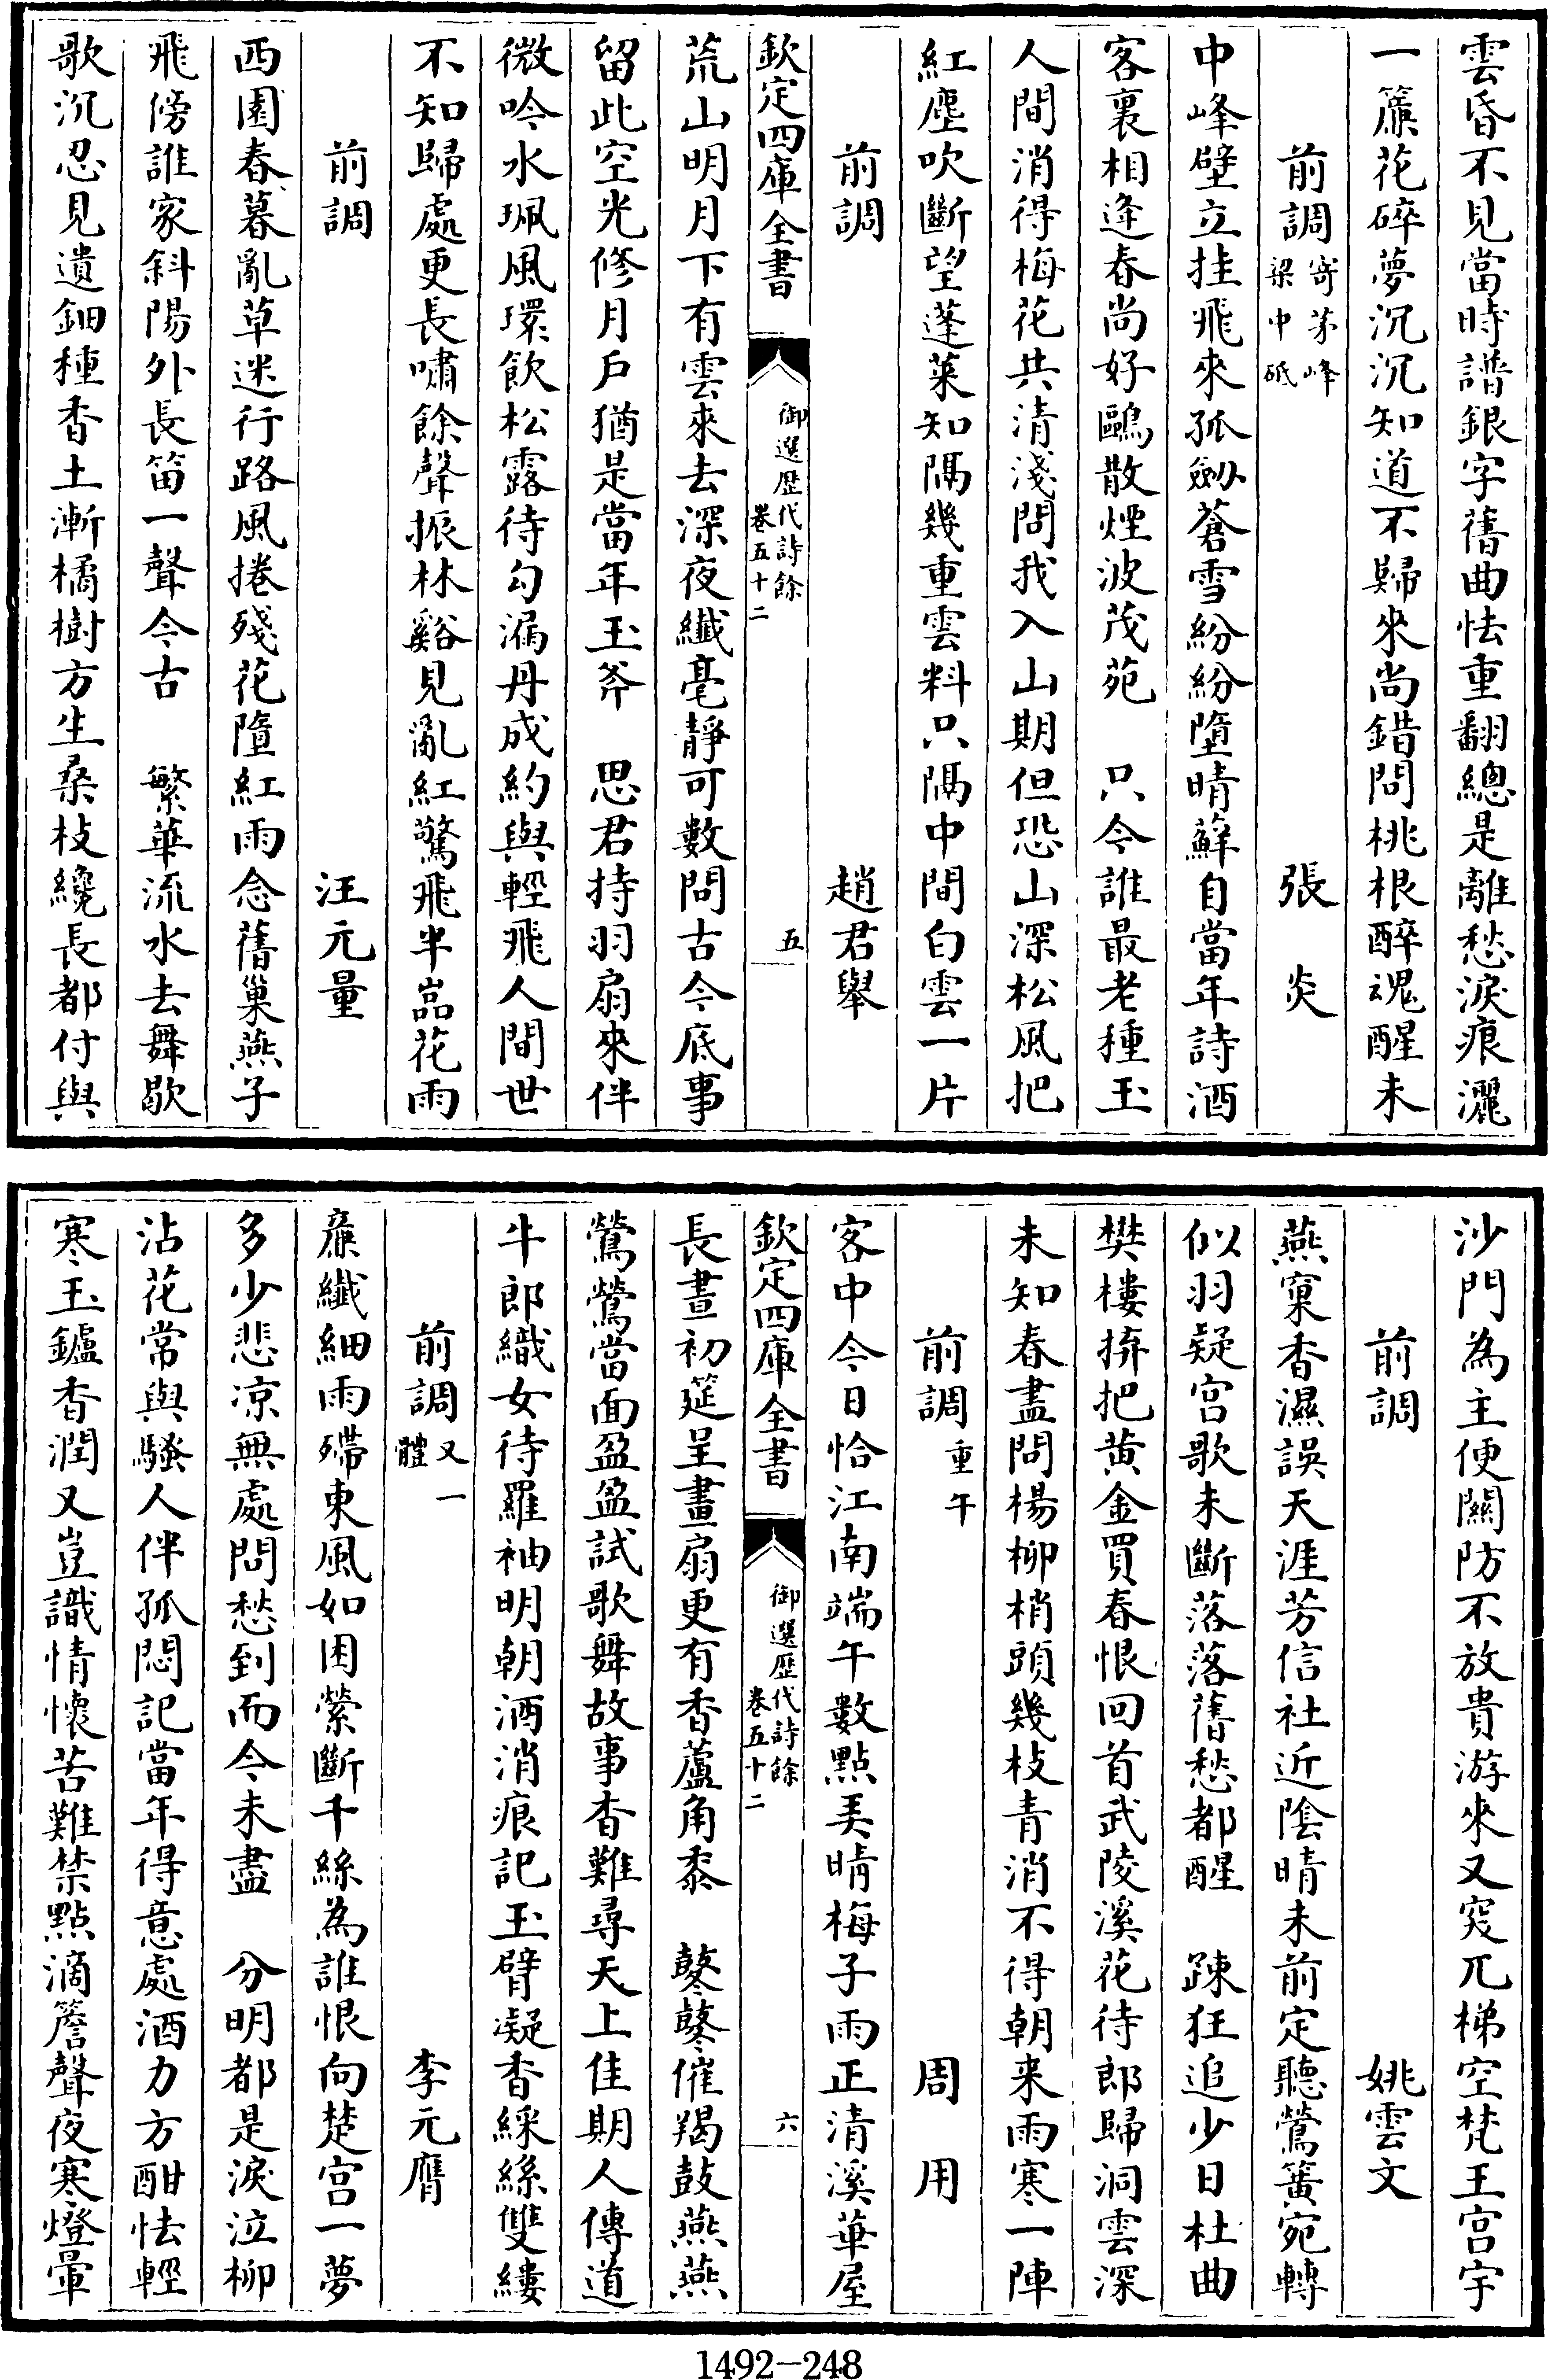 雲昏不見當時譜銀字舊曲怯重翻總是離愁淚痕灑
一簾花碎夢沉沉知道不歸來尚錯問桃根醉魂醒未
前調寄茅峰梁中砥 張炎
中峰壁立挂飛來孤劒蒼雪紛紛墮晴蘚自當年詩酒
客裏相逢春尚好鷗散煙波茂苑 只今誰最老種玉
人間消得梅花共清淺問我入山期但恐山深松風把
紅塵吹斷望蓬萊知隔幾重雲料只隔中間白雲一片
前調 趙君舉
欽定四庫全書 御選歷代詩餘 卷五十二 五
荒山明月下有雲來去深夜纖毫靜可數問古今底事
留此空光修月戶猶是當年玉斧 思君持羽扇來伴
微吟水珮風環飲松露待勾漏丹成約與輕飛人間世
不知歸處更長嘯餘聲振林谿見亂紅驚飛半嵓花雨
前調 汪元量
西園春暮亂草迷行路風捲殘花墮紅雨念舊巢燕子
飛傍誰家斜陽外長笛一聲今古 繁華流水去舞歇
歌沉忍見遺鈿種香土漸橘樹方生桑枝纔長都付與
沙門為主便關防不放貴游來又突兀梯空梵王宮宇
前調 姚雲文
燕窠香濕誤天涯芳信社近陰晴未前定聽鶯簧宛轉
似羽疑宮歌未斷落落舊愁都醒 疎狂追少日杜曲
樊樓拚把黃金買春恨回首武陵溪花待郎歸洞雲深
未知春盡問楊柳梢頭幾枝青消不得朝来雨寒一陣
前調重午 周用
客中今日恰江南端午數點羙晴梅子雨正清溪華屋
欽定四庫全書 御選歷代詩餘 卷五十二 六
長晝初筵呈畫扇更有香蘆角黍 鼕鼕催羯鼓燕燕
鶯鶯當面盈盈試歌舞故事杳難尋天上佳期人傳道
牛郎織女待羅袖明朝酒消痕記玉臂凝香綵絲雙縷
前調又一體 李元膺
㢘纖細雨殢東風如困縈斷千絲為誰恨向楚宮一夢
多少悲凉無處問愁到而今未盡 分明都是淚泣柳
沾花常與騷人伴孤悶記當年得意處酒力方酣怯輕
寒玉鑪香潤又豈識情懷苦難禁點滴簷聲夜寒燈暈
1492—248